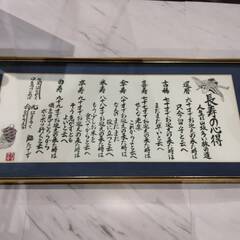 長寿の心得
人生は山坂多い旅の道
還暦
六十才でお迎えの来た時は
只今留守と云へ
古稀
七十才でお迎えの来た時は
まだまだ早いと云へ
喜寿
七十七才でお迎えの来た時は
せくな老楽
これからよと云へ
傘寿
八十才でお迎えの来た時は
なんのまだまだ
役に立つと云へ
米寿
八十八才でお迎えの来た時は
もう少しお米を
食べてからと云へ
卒寿
九十才でお迎えの来た時は
そう急がずとも
よいと云へ
白寿
九十九才でお迎えの来た時は
頃を見て此方から
ボツボツ行くと云へ